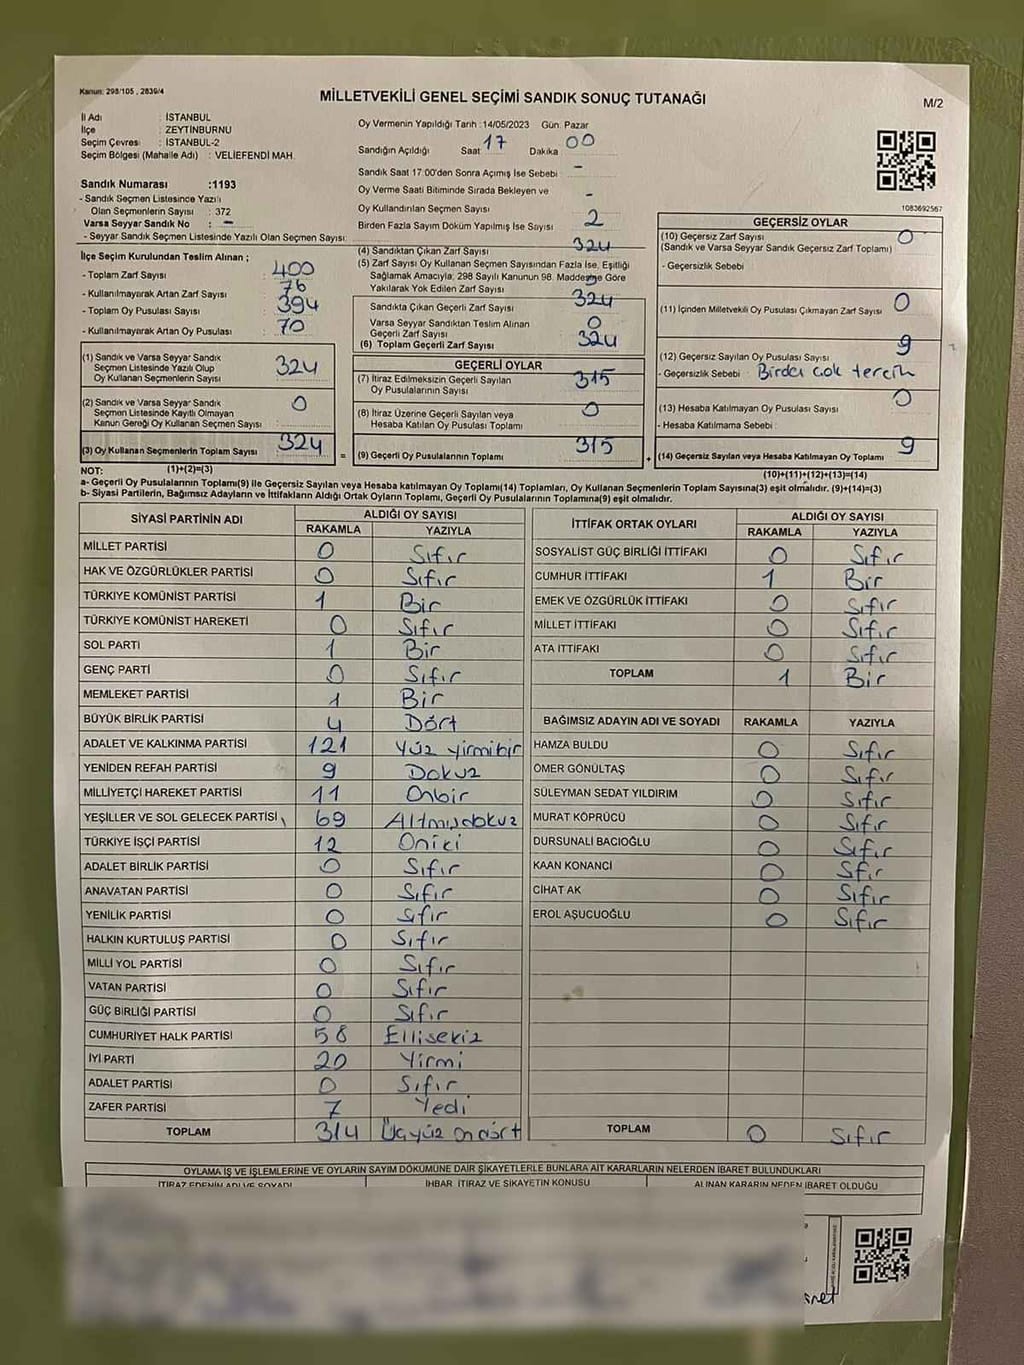 Kanun: 298/105 , 2839/4
MİLLETVEKİLİ GENEL SEÇİMİ SANDIK SONUÇ TUTANAĞI
M/2
İl Adı : İSTANBUL
İlçe : ZEYTİNBURNU
Seçim Çevresi : İSTANBUL-2
Seçim Bölgesi (Mahalle Adı) : VELİEFENDİ MAH.
Oy Vermenin Yapıldığı Tarih :14/05/2023 Gün: Pazar
Sandığın Açıldığı Saat 17 Dakika 00
Sandık Saat 17:00'den Sonra Açımış İse Sebebi : -
Oy Verme Saati Bitiminde Sırada Bekleyen ve
Oy Kullandırılan Seçmen Sayısı -
Birden Fazla Sayım Döküm Yapılmış İse Sayısı 2
1083692567
Sandık Numarası :1193
- Sandık Seçmen Listesinde Yazılı
Olan Seçmenlerin Sayısı : 372
Varsa Seyyar Sandık No : -
- Seyyar Sandık Seçmen Listesinde Yazılı Olan Seçmen Sayısı:
İlçe Seçim Kurulundan Teslim Alınan ;
- Toplam Zarf Sayısı : 400
- Kullanılmayarak Artan Zarf Sayısı : 76
- Toplam Oy Pusulası Sayısı : 394
- Kullanılmayarak Artan Oy Pusulası : 70
(1) Sandık ve Varsa Seyyar Sandık
Seçmen Listesinde Yazılı Olup
Oy Kullanan Seçmenlerin Sayısı : 324
(2) Sandık ve Varsa Seyyar Sandık
Seçmen Listesinde Kayıtlı Olmayan
Kanun Gereği Oy Kullanan Seçmen Sayısı : 0
(3) Oy Kullanan Seçmenlerin Toplam Sayısı : 324
(4) Sandıktan Çıkan Zarf Sayısı : 324
(5) Zarf Sayısı Oy Kullanan Seçmen Sayısından Fazla İse, Eşitliği
Sağlamak Amacıyla, 298 Sayılı Kanunun 98. Maddesine Göre
Yakılarak Yok Edilen Zarf Sayısı
Sandıkta Çıkan Geçerli Zarf Sayısı : 324
Varsa Seyyar Sandıktan Teslim Alınan
Geçerli Zarf Sayısı : 0
(6) Toplam Geçerli Zarf Sayısı : 324
GEÇERLİ OYLAR
(7) İtiraz Edilmeksizin Geçerli Sayılan
Oy Pusulalarının Sayısı : 315
(8) İtiraz Üzerine Geçerli Sayılan veya
Hesaba Katılan Oy Pusulası Toplamı : 0
= (9) Geçerli Oy Pusulalarının Toplamı : 315 +
GEÇERSİZ OYLAR
(10) Geçersiz Zarf Sayısı : 0
(Sandık ve Varsa Seyyar Sandık Geçersiz Zarf Toplamı)
- Geçersizlik Sebebi :
(11) İçinden Milletvekili Oy Pusulası Çıkmayan Zarf Sayısı : 0
(12) Geçersiz Sayılan Oy Pusulası Sayısı : 9
- Geçersizlik Sebebi :
(13) Hesaba Katılmayan Oy Pusulası Sayısı : 0
- Hesaba Katılmama Sebebi :
(14) Geçersiz Sayılan veya Hesaba Katılmayan Oy Toplamı : 9
NOT: (1)+(2)=(3) (10)+(11)+(12)+(13)=(14)
a- Geçerli Oy Pusulalarının Toplamı(9) ile Geçersiz Sayılan veya Hesaba katılmayan Oy Toplamı(14) Toplamları, Oy Kullanan Seçmenlerin Toplam Sayısına(3) eşit olmalıdır. (9)+(14)=(3)
b- Siyasi Partilerin, Bağımsız Adayların ve İttifakların Aldığı Ortak Oyların Toplamı, Geçerli Oy Pusulalarının Toplamına(9) eşit olmalıdır.
SİYASİ PARTİNİN ADI ALDIĞI OY SAYISI
RAKAMLA YAZIYLA
MİLLET PARTİSİ 0 Sıfır
HAK VE ÖZGÜRLÜKLER PARTİSİ 0 Sıfır
TÜRKİYE KOMÜNİST PARTİSİ 1 Bir
TÜRKİYE KOMÜNİST HAREKETİ 0 Sıfır
SOL PARTİ 1 Bir
GENÇ PARTİ 0 Sıfır
MEMLEKET PARTİSİ 1 Bir
BÜYÜK BİRLİK PARTİSİ 4 Dört
ADALET VE KALKINMA PARTİSİ 121 Yüz yirmibir
YENİDEN REFAH PARTİSİ 9 Dokuz
MİLLİYETÇİ HAREKET PARTİSİ 11 Onbir
YEŞİLLER VE SOL GELECEK PARTİSİ 69 Altmışdokuz
TÜRKİYE İŞÇİ PARTİSİ 12 Oniki
ADALET BİRLİK PARTİSİ 0 Sıfır
ANAVATAN PARTİSİ 0 Sıfır
YENİLİK PARTİSİ 0 Sıfır
HALKIN KURTULUŞ PARTİSİ 0 Sıfır
MİLLİ YOL PARTİSİ 0 Sıfır
VATAN PARTİSİ 0 Sıfır
GÜÇ BİRLİĞİ PARTİSİ 0 Sıfır
CUMHURİYET HALK PARTİSİ 58 Ellisekiz
İYİ PARTİ 20 Yirmi
ADALET PARTİSİ 0 Sıfır
ZAFER PARTİSİ 7 Yedi
TOPLAM 314 Üçyüz ondört
İTTİFAK ORTAK OYLARI ALDIĞI OY SAYISI
RAKAMLA YAZIYLA
SOSYALİST GÜÇ BİRLİĞİ İTTİFAKI 0 Sıfır
CUMHUR İTTİFAKI 1 Bir
EMEK VE ÖZGÜRLÜK İTTİFAKI 0 Sıfır
MİLLET İTTİFAKI 0 Sıfır
ATA İTTİFAKI 0 Sıfır
TOPLAM 1 Bir
BAĞIMSIZ ADAYIN ADI VE SOYADI RAKAMLA YAZIYLA
HAMZA BULDU 0 Sıfır
ÖMER GÖNÜLTAŞ 0 Sıfır
SÜLEYMAN SEDAT YILDIRIM 0 Sıfır
MURAT KÖPRÜCÜ 0 Sıfır
DURSUNALİ BACIOĞLU 0 Sıfır
KAAN KONANCİ 0 Sıfır
CİHAT AK 0 Sıfır
EROL AŞUCUOĞLU 0 Sıfır
TOPLAM 0 Sıfır
OYLAMA İŞ VE İŞLEMLERİNE VE OYLARIN SAYIM DÖKÜMÜNE DAİR ŞİKAYETLERLE BUNLARA AİT KARARLARIN NELERDEN İBARET BULUNDUKLARI
İTİRAZ EDENİN ADI VE SOYADI İHBAR, İTİRAZ VE ŞİKAYETİN KONUSU ALINAN KARARIN NEDEN İBARET OLDUĞU